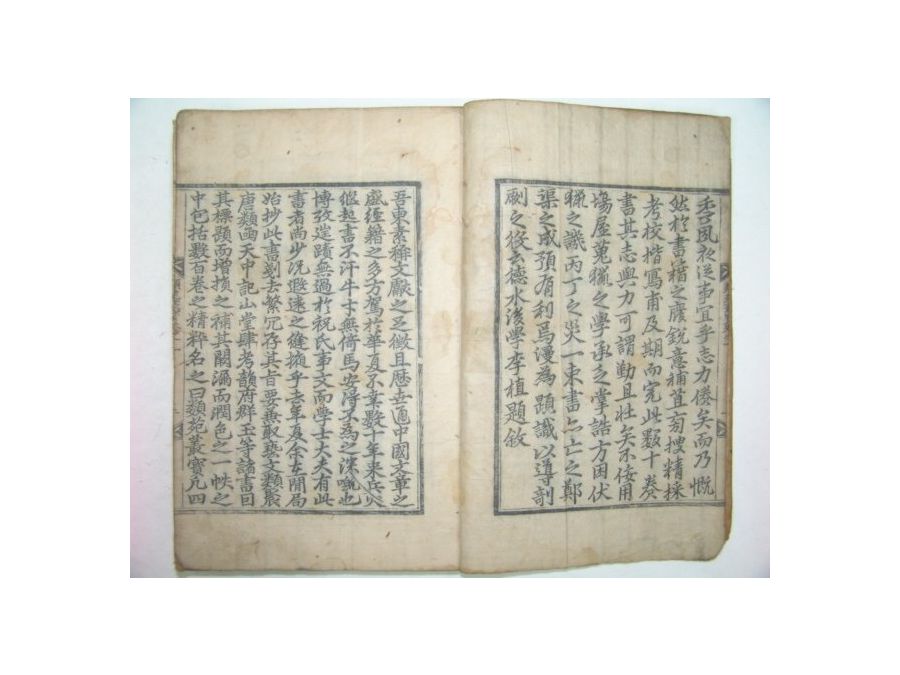 香夙夜從事宜乎志力倦矣而乃慨
然於書籍之廢銳意補苴旁搜精採
考校楷寫甫及期而完此數十卷
書其志與力可謂勤且壯矣不佞用
場屋蒐獵之學承乏掌誥方困伏
獵之譏丙丁之災一束書亦亡之鄭
渠之成預有利焉漫為題識以導剞
劂之役云德水後學李植題敘
吾東素稱文獻之足徵且歷世通中國文章之
盛經籍之多方駕於華夏不幸數十年來兵火
繼起書不汗牛士無倚馬安得不為之深慨也
博攷逞蹟無過於祝氏事文而學士大夫有此
書者尚少況遐遠之縫掖乎去年夏余在閒局
始抄此書剗去繁冗存其旨要兼取藝文類聚
唐類函天中記山堂肆考韻府群玉等諸書曰
其標題而增損之補其闕漏而潤色之一帙之
中包括數百卷之精粹名之曰類苑叢寶凡四